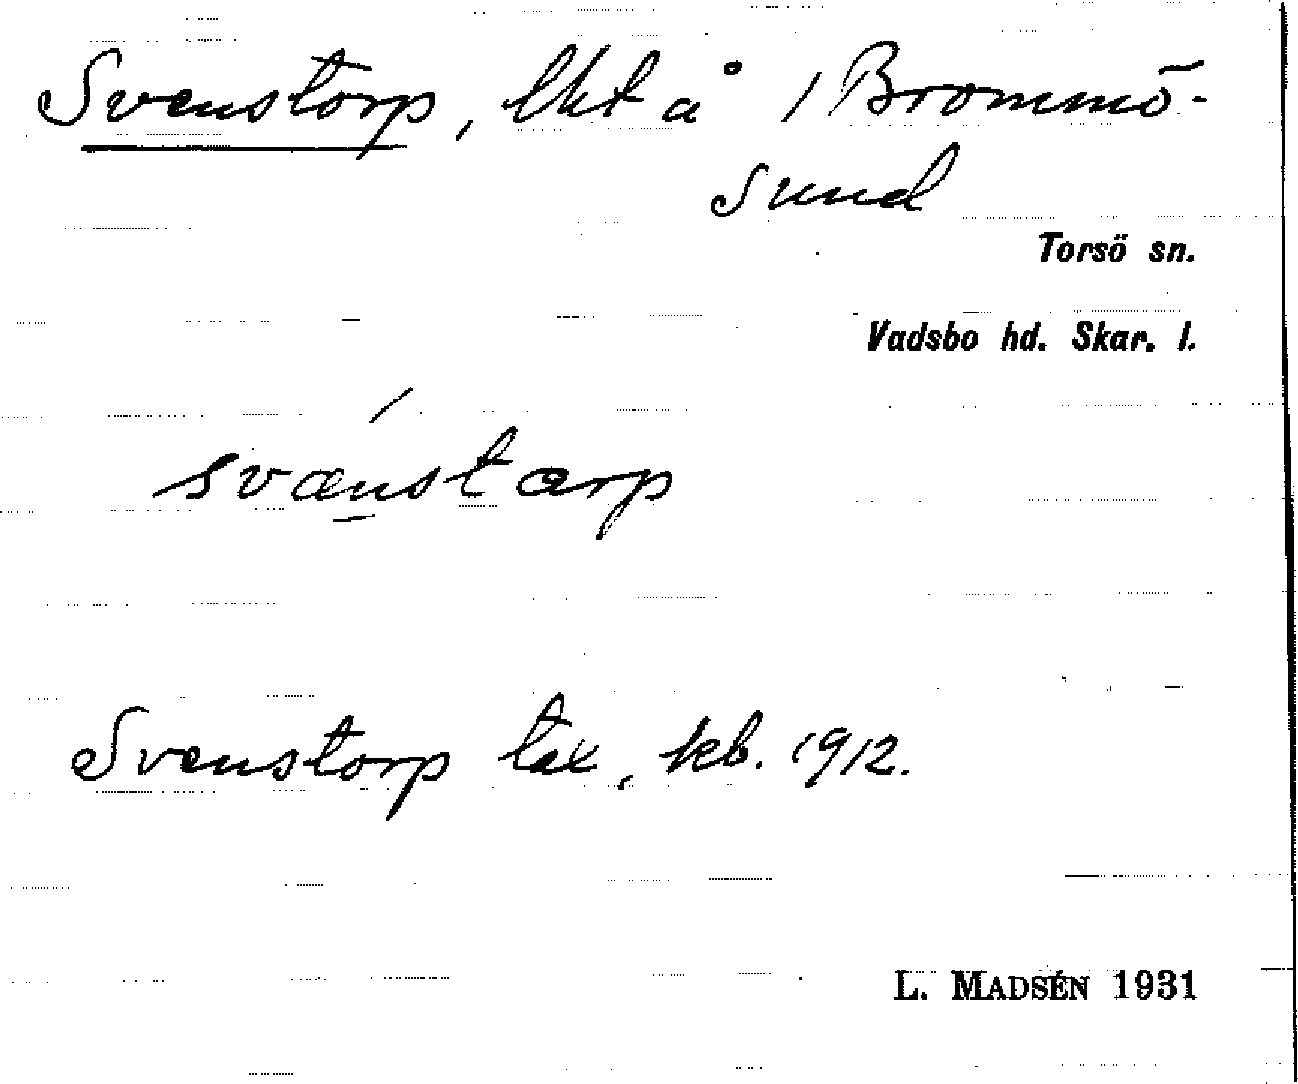 Svenstorp, lht å 1 Brommö-
sund
Torsö sn.
Vadsbo hd. Skar. l.
svænstarp
Svenstorp tax, kb. 1912.
L. MADSÉN 1931